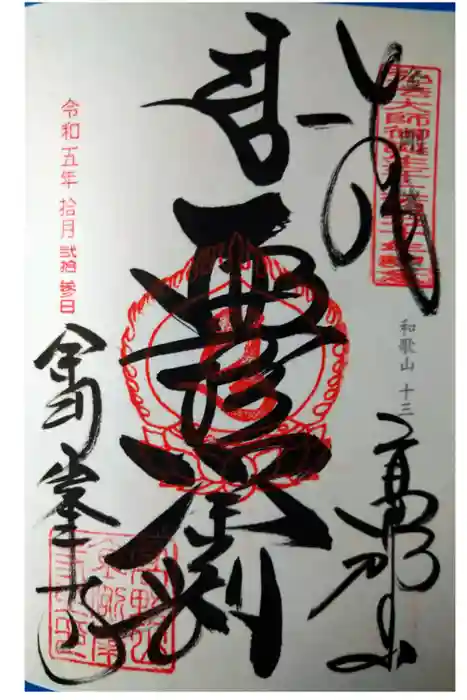 弘法大師御誕生千二百五十年記念
奉拝
和歌山 十三
高野山
遍照金剛
令和五年 拾月 弐拾 參日
金剛峯寺